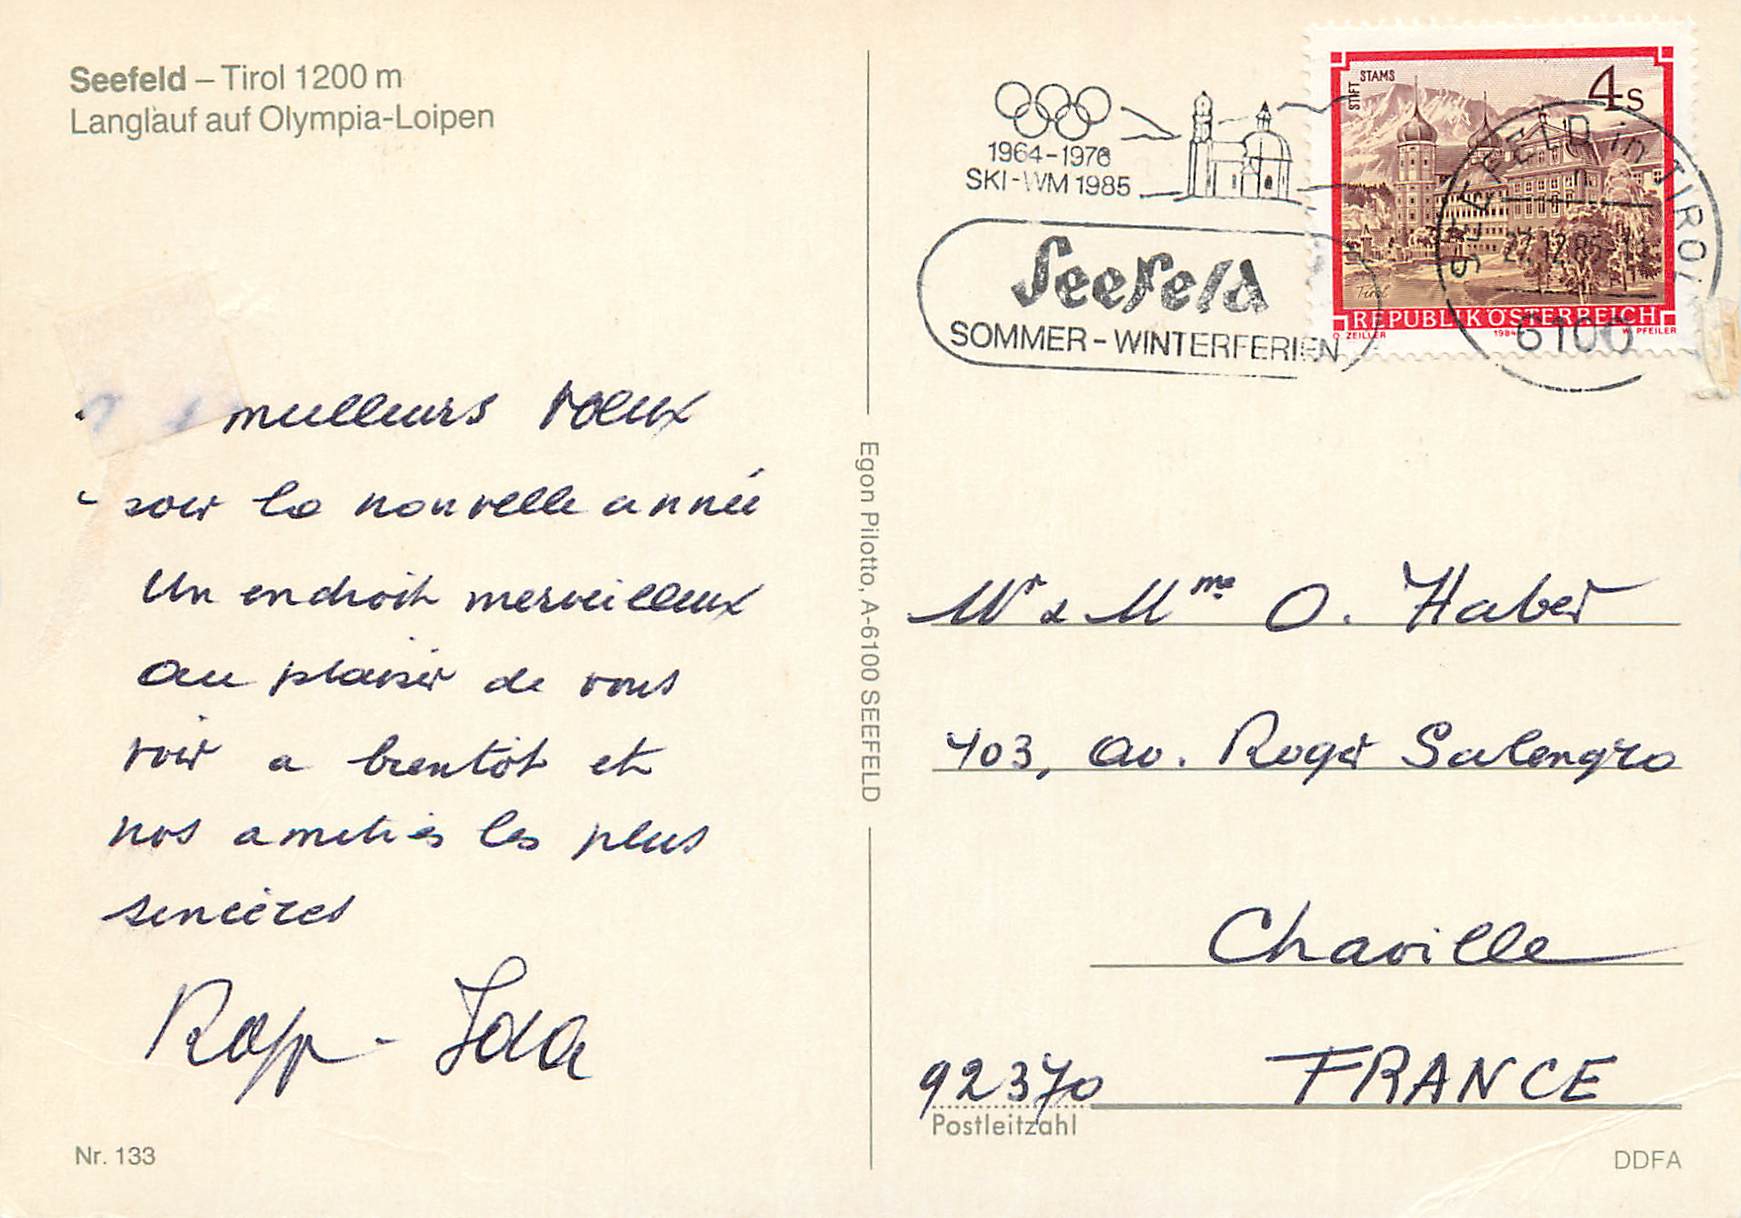 Seefeld – Tirol 1200 m
Langlauf auf Olympia-Loipen
meilleurs vœux
pour la nouvelle année
Un endroit merveilleux
au plaisir de vous
voir a bientôt et
nos amitiés les plus
sincères
Rapp - Ida
Nr. 133
Egon Pilotto, A-6100 SEEFELD
1964-1976
SKI-WM 1985
Seefeld
SOMMER-WINTERFERIEN
STIFT STAMS
4 S
Tirol
REPUBLIK ÖSTERREICH
O. ZEILLER 1984 W. PFEILER
SEEFELD in TIROL
27.12.85-13
6100
Mr & Mme O. Haber
403, av. Roger Salengro
Chaville
92370 FRANCE
Postleitzahl
DDFA